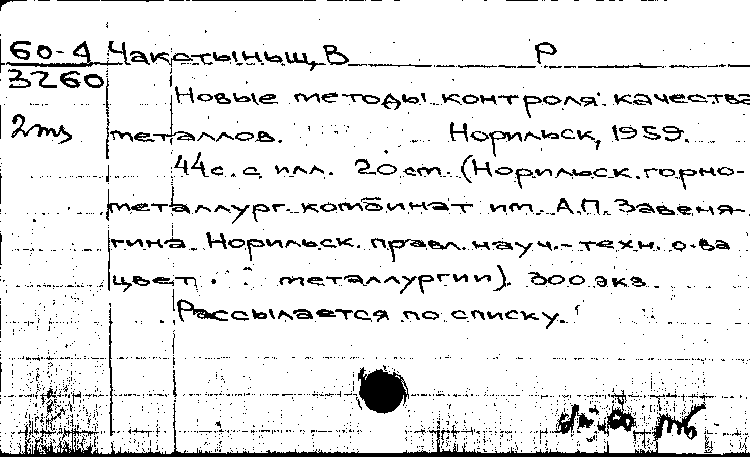 60-4 Чакстыньш, В Р
3260
Новые методы контроля качества
2 тз металлов. Норильск, 1959.
44с. с илл. 20 см. (Норильск. горно-
металлург. комбинат им. А.П. Завеня-
гина. Норильск. правл. науч.-техн. о-ва
цвет. металлургии). 300 экз.
Рассылается по списку.